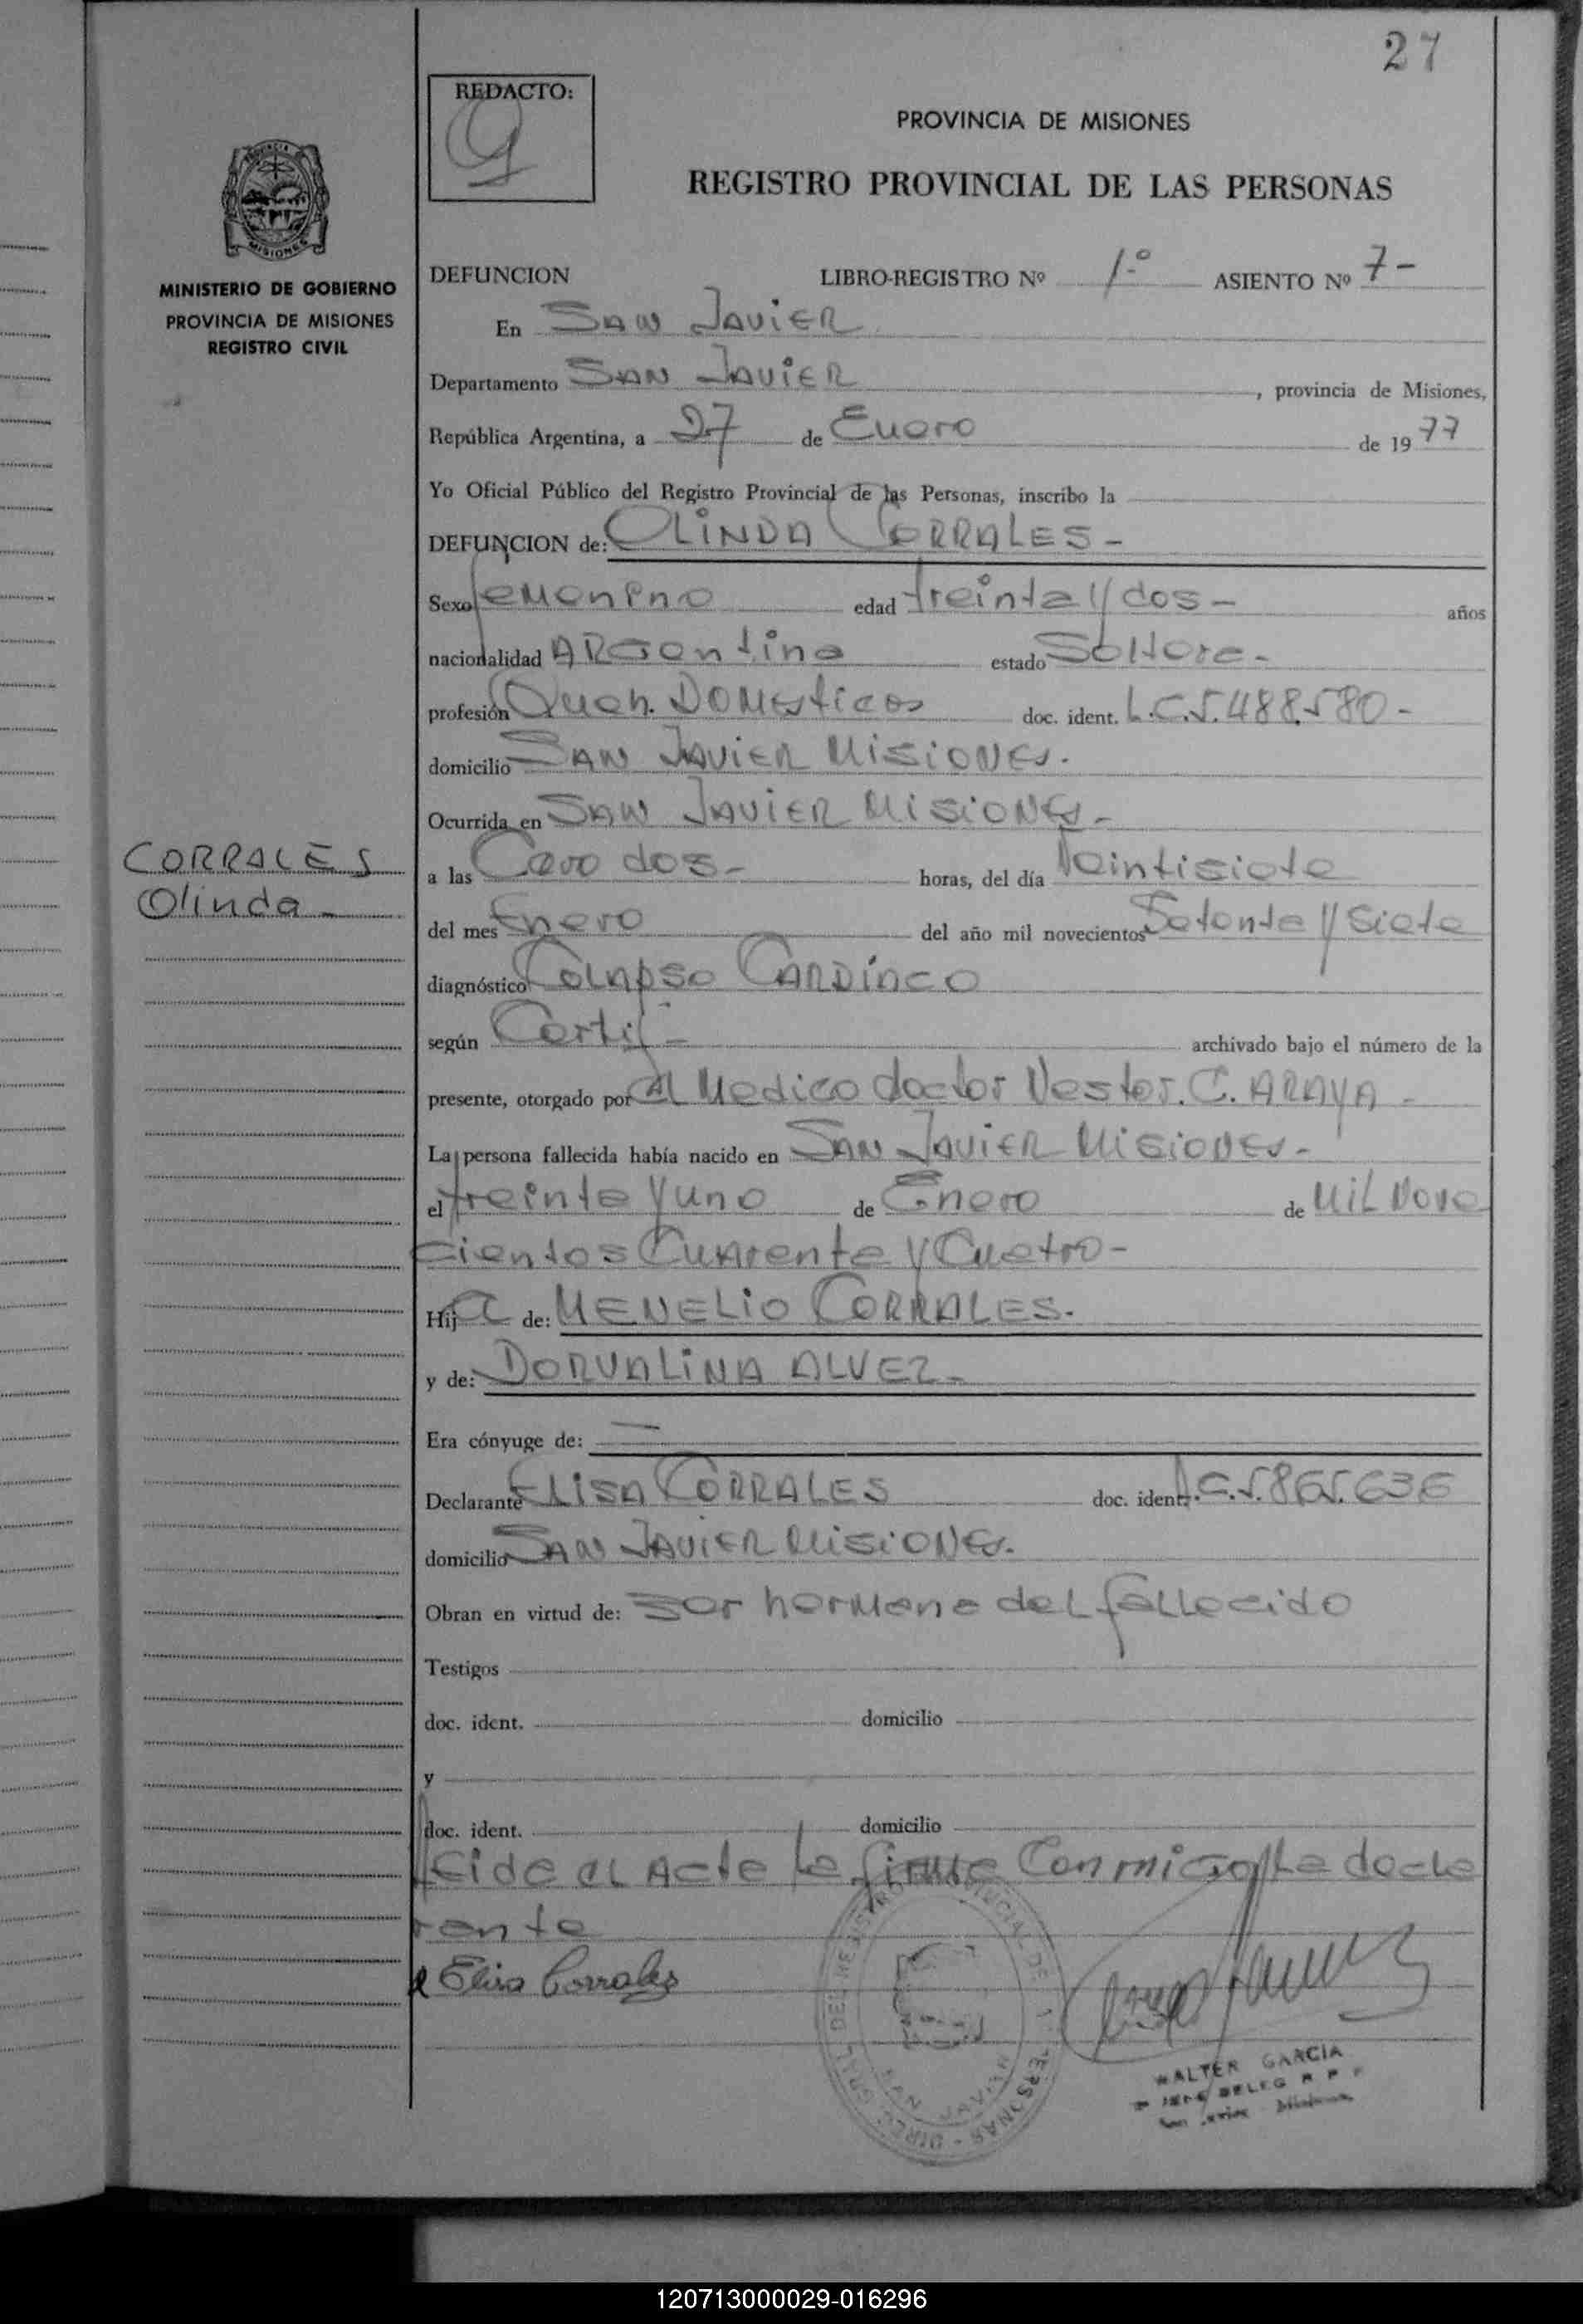 27
REDACTO:
PROVINCIA DE MISIONES
REGISTRO PROVINCIAL DE LAS PERSONAS
MINISTERIO DE GOBIERNO
PROVINCIA DE MISIONES
REGISTRO CIVIL
DEFUNCION LIBRO-REGISTRO Nº 1º ASIENTO Nº 7-
En SAN JAVIER
Departamento SAN JAVIER, provincia de Misiones,
República Argentina, a 27 de Enero de 1977
Yo Oficial Público del Registro Provincial de las Personas, inscribo la
DEFUNCION de: OLINDA CORRALES-
Sexo femenino edad treinta y dos- años
nacionalidad ARGentina estado Soltera-
profesión Queh. DOMesticos doc. ident. L.C.5.488.580-
domicilio SAN JAVIER MISIONES.
Ocurrida en SAN JAVIER MISIONES-
CORRALES
Olinda-
a las Cero dos- horas, del día Veintisiete
del mes Enero del año mil novecientos Setenta y Siete
diagnóstico COLAPSO CARDIACO
según Certif- archivado bajo el número de la
presente, otorgado por el Medico doctor Nestor. C. ARAYA-
La persona fallecida había nacido en SAN JAVIER MISIONES-
el treinta y uno de Enero de Mil Nove
cientos Cuarenta y Cuatro-
Hija de: MENELIO CORRALES.
y de: DORVALINA ALVEZ-
Era cónyuge de: —
Declarante ELISA CORRALES doc. ident. L.C.5.865.636
domicilio SAN JAVIER MISIONES.
Obran en virtud de: Ser hermana del fallecido
Testigos
doc. ident. domicilio
y
doc. ident. domicilio
Leida el Acta la firma Conmigo la decla
rante
Elisa Corrales
WALTER GARCIA
120713000029-016296